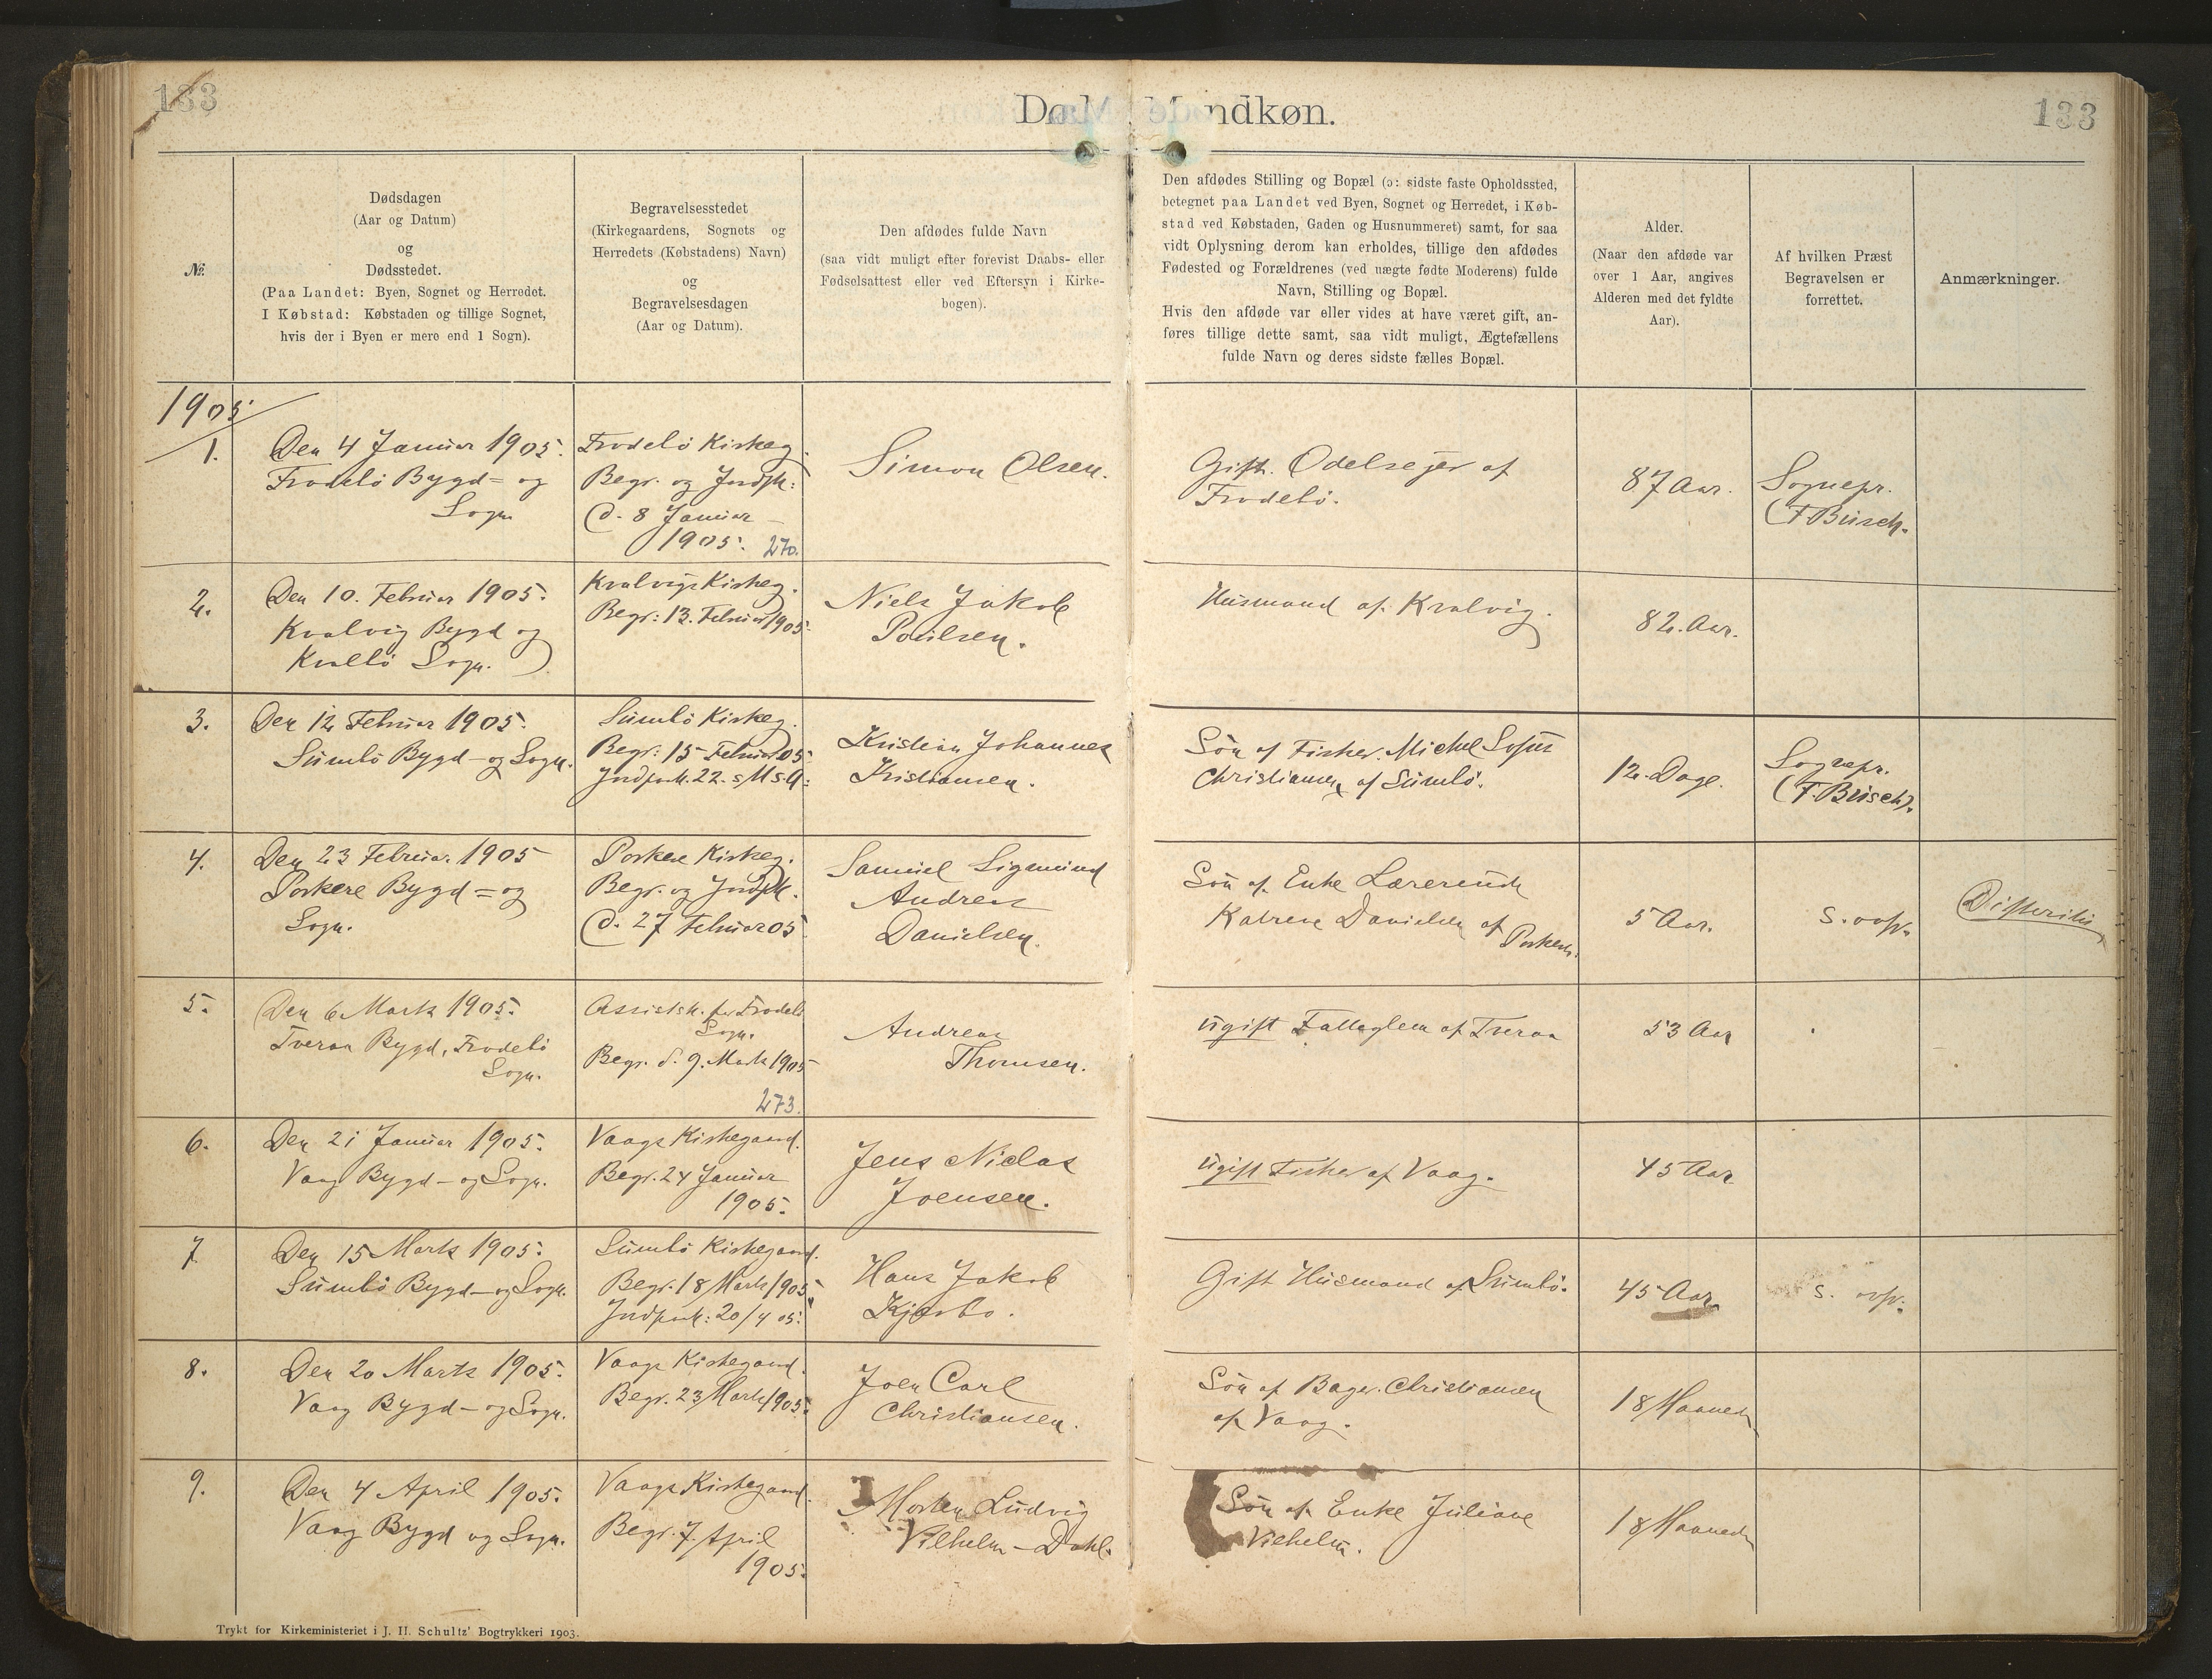 133
133
Døde Mandkøn.
№
Dødsdagen
(Aar og Datum)
og
Dødsstedet.
(Paa Landet: Byen, Sognet og Herredet.
I Købstad: Købstaden og tillige Sognet,
hvis der i Byen er mere end 1 Sogn).
Begravelsesstedet
(Kirkegaardens, Sognets og
Herredets (Købstadens) Navn)
og
Begravelsesdagen
(Aar og Datum).
Den afdødes fulde Navn
(saa vidt muligt efter forevist Daabs- eller
Fødselsattest eller ved Eftersyn i Kirke-
bogen).
Den afdødes Stilling og Bopæl (ɔ: sidste faste Opholdssted,
betegnet paa Landet ved Byen, Sognet og Herredet, i Køb-
stad ved Købstaden, Gaden og Husnummeret) samt, for saa
vidt Oplysning derom kan erholdes, tillige den afdødes
Fødested og Forældrenes (ved uægte fødte Moderens) fulde
Navn, Stilling og Bopæl.
Hvis den afdøde var eller vides at have været gift, an-
føres tillige dette samt, saa vidt muligt, Ægtefællens
fulde Navn og deres sidste fælles Bopæl.
Alder.
(Naar den afdøde var
over 1 Aar, angives
Alderen med det fyldte
Aar).
Af hvilken Præst
Begravelsen er
forrettet.
Anmærkninger.
1905.
1.
Den 4 Januar 1905.
Frodebö Bygd= og
Sogn
Frodebö Kirkeg.
Begr. og Jordpk:
d. 8 Januar
1905. 270.
Simon Olsen.
Gift. Odelsejer af
Frodebö.
87 Aar.
Sognepr.
(F. Busch.
2.
Den 10. Februar 1905.
Kvalvig Bygd og
Kvalbö Sogn.
Kvalvigs Kirkeg.
Begr: 13. Februar 1905.
Niels Jakob
Poulsen.
Husmand af Kvalvig.
82. Aar.
3.
Den 12 Februar 1905.
Sumbö Bygd- og Sogn.
Sumbö Kirkeg.
Begr: 15 Februar 05.
Jordpaak. 22. s M s A:
Kristian Johannes
Kristiansen.
Sön af Fisker. Michel Sofus
Christiansen af Sumbö.
12. Dage.
Sognepr.
(F. Busch).
4.
Den 23 Februar 1905
Porkere Bygd = og
Sogn.
Porkere Kirkeg.
Begr. og Jordpk.
d. 27 Februar 05
Samuel Sigmund
Andreas
Danielsen.
Sön af Enke
Katrine Danielsen af Porkere.
5 Aar.
s. ovfr.
Difteritis
5.
Den 6 Marts 1905.
Tveraa Bygd, Frodebö
Sogn.
Assistsk. for Frodebö
Sogn.
Begr. d. 9. Marts 1905
273.
Andreas
Thomsen.
ugift Fattiglem af Tveraa
53 Aar
6.
Den 21 Januar 1905.
Vaag Bygd - og Sogn.
Vaags Kirkegaard.
Begr. 24 Januar
1905.
Jens Niclas
Joensen.
ugift Fisker af Vaag.
45 Aar
7
Den 15 Marts 1905.
Sumbö Bygd - og Sogn.
Sumbö Kirkegaard.
Begr. 18 Marts 1905
Jordpaak: 20/4 05.
Hans Jakob
Kjærbo.
Gift Husmand af Sumbö.
45 Aar
s. ovfr.
8.
Den 20 Marts 1905.
Vaag Bygd - og Sogn.
Vaags Kirkegaard.
Begr. 23 Marts 1905.
Joen Carl
Christiansen.
Sön af Bager. Christiansen
af Vaag.
18 Maaneder
9.
Den 4 April 1905.
Vaag Bygd og Sogn.
Vaags Kirkegaard.
Begr. 7. April
1905.
Morten Ludvig
Vilhelm - Dahl.
Sön af Enke Juliane
Vilhelm.
18 Maaneder
Trykt for Kirkeministeriet i J. H. Schultz' Bogtrykkeri 1903.